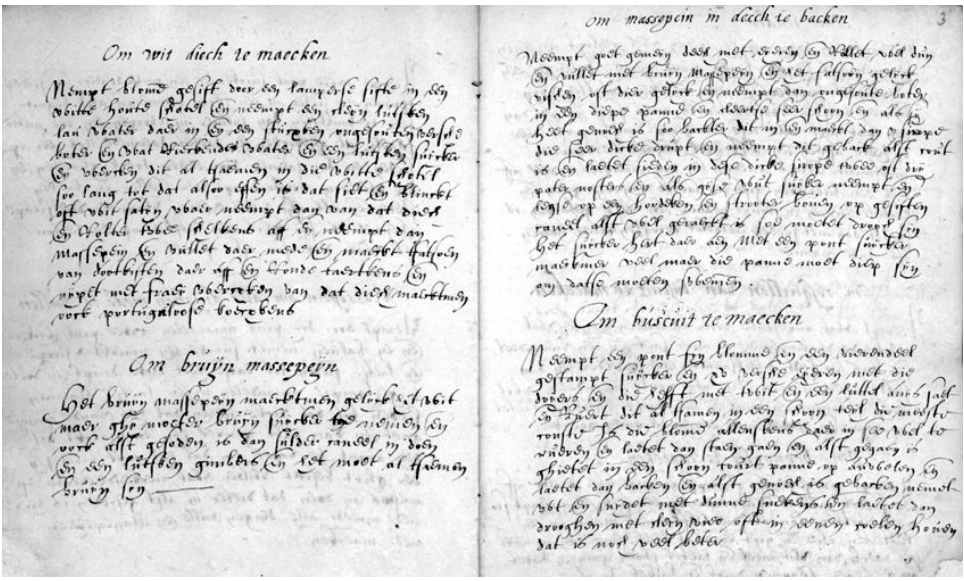 Om wit deech te maecken
Neempt blome gesift door een lampersse sifte in een
witte houte schotel en neempt een cleyn lutsken
lau water daer in en een stucxken ongesouten versche
boter en wat rieckende water en een lutsken suycker
en wercken dit al tsaemen in die witte schotel
soo lang tot dat alsoo effen is dat siet en blinckt
oft wit satyn waer neempt dan van dat deech
en rolter twee schelkens aff en neempt dan
massepeyn en vullet daer mede en maeckt fatsoen
van dootkisten daer aff en ronde taertkens en
nypet met fraey wercxken van dat deech maecktmen
oock portugaloose koecxkens
Om bruijn massepeyn
Het bruyn massepeyn maecktmen gelyck het wit
maer ghy moeter bruyn suycker toe nemen en
oock alst gesoden is dan sulder caneel in doen
en een lutsken gimbers en het moet al tsaemen
bruyn syn
om massepein in deech te backen 3
Neempt goet gemeyn deech met eyeren en rollet wel dun
en vullet met bruyn massepeyn en het fatsoen gelyck
visschen oft dier gelyck en neempt dan ongesoute boter
in een diepe panne en
heet genoech is soo backter dit in en maeckt dan
die seer dicke druypt en neempt die geback alst cout
is en laetet sieden in dese dicke sirope twee oft dry
pater nosters en als
legse op een hordeken en stroyter boven op gesiften
caneel alst wel geraeckt is soo moetet droog syn
het suycker hert daer aen Met een pont suycker
maeckmer veel maer die panne moet diep syn
om datse moeten swemmen
Om buscuit te maecken
Neempt een pont fyn blomme en een vierendeel
gestampt suycker en versche eyeren met die
doyers en die helft met twit en een luttel anys saet
en ruert dit al tsamen in een schoon teil die meeste
conste is die blome allenskens daer in soo wel te
rueren en laetet dan staen gaen en alst gegaen is
ghietet in een schoon taert panne op
laetet dan backen en alst genoech is gebacken
en snydet met dunne snekens en laetet dan
drooghen met cleyn vier oft in eenen coelen hoven
dat is noch veel beter